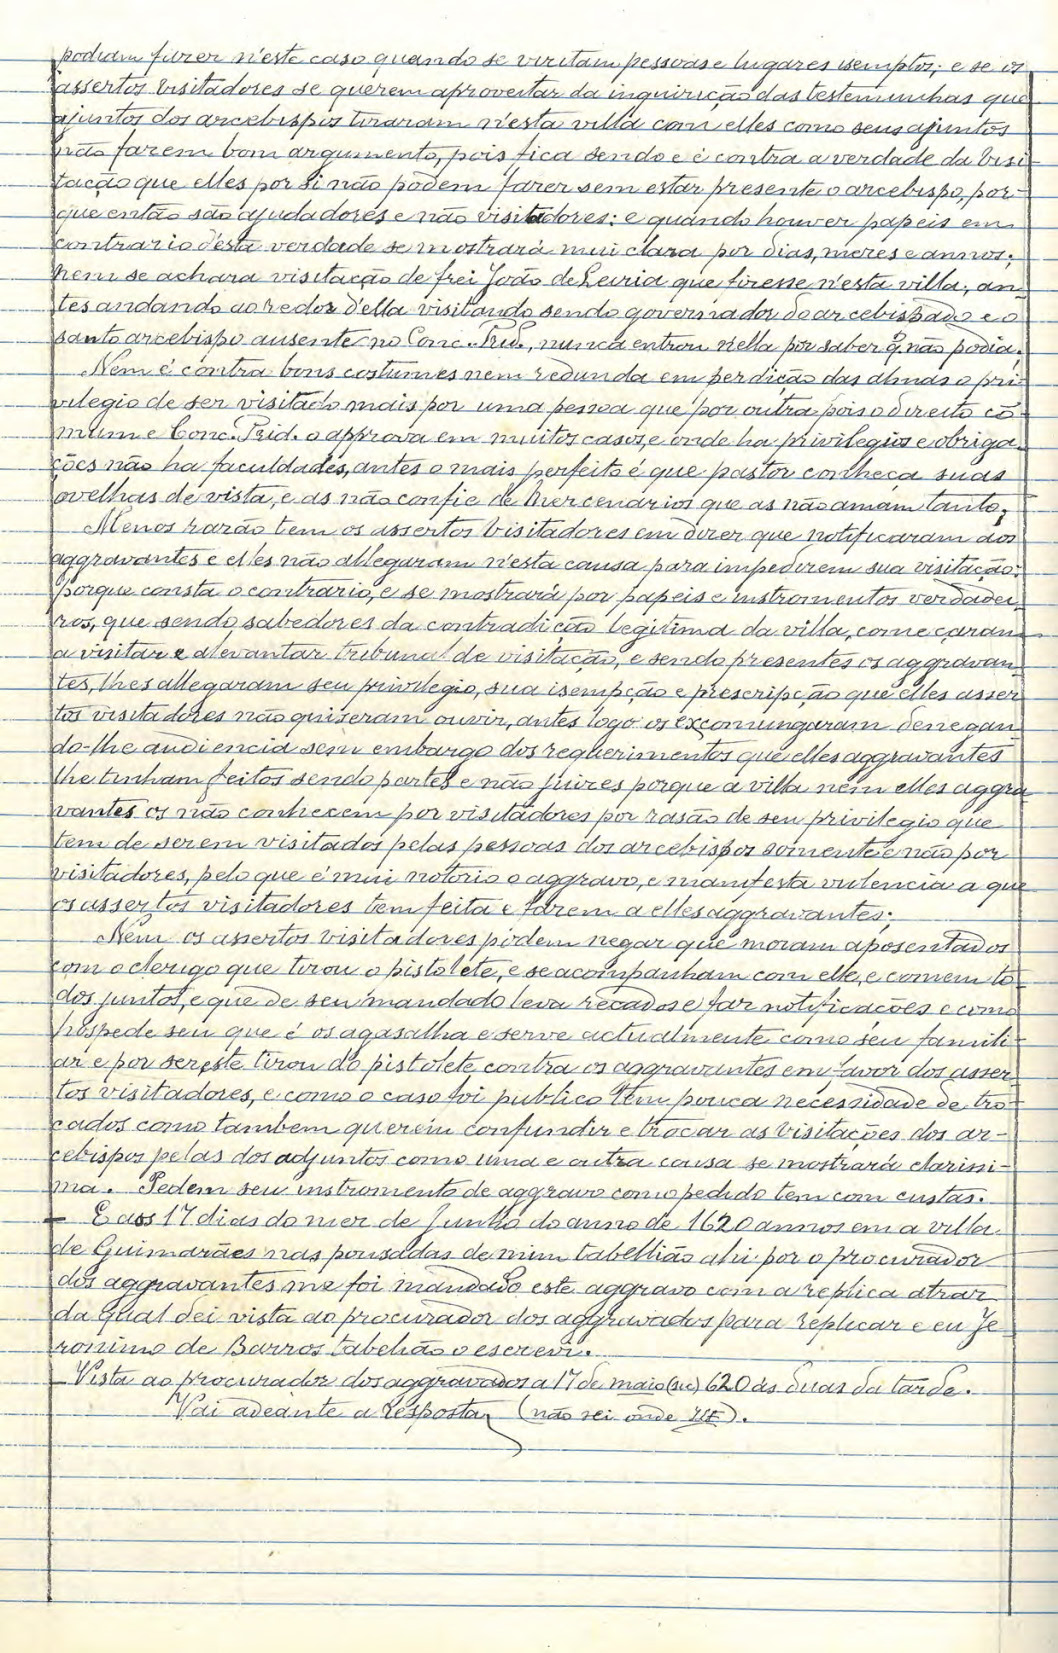 podiam fazer n'este caso quando se visitam pessoas e lugares isemptos; e se os
assertos visitadores se querem aproveitar da inquirição das testemunhas que
ajuntos dos arcebispos tiraram n'esta villa com elles como seus ajuntos
não fazem bom argumento, pois fica sendo e é contra a verdade da visi-
tação que elles por si não podem fazer sem estar presente o arcebispo, por-
que então são ajudadores e não visitadores: e quando houver papeis em
contrario d'esta verdade se mostrará mui clara por dias, mezes e annos;
nem se achara visitação de frei João de Leiria que fizesse n'esta villa, an-
tes andando ao redor d'ella visitando sendo governador do arcebispado e o
santo arcebispo ausente no Conc. Trid., nunca entrou n'ella por saber q̃ não podia.
Nem é contra bons costumes nem redunda em perdição das almas o pri-
vilegio de ser visitado mais por uma pessoa que por outra pois o direito cō-
mum e Conc. Trid. o approva em muitos casos, e onde ha privilegios e obriga-
ções não ha faculdades, antes o mais perfeito é que pastor conheça suas
ovelhas de vista, e as não confie de mercenarios que as não amam tanto;
Menos razão tem os assertos visitadores em dizer que notificaram aos
aggravantes e elles não allegaram n'esta causa para impedirem sua visitação:
porque consta o contrario, e se mostrará por papeis e instromentos verdadei-
ros, que sendo sabedores da contradição legitima da villa, começaram
a visitar e alevantar tribunal de visitação, e sendo presentes os aggravan-
tes, lhes allegaram seu privilegio, sua isempção e prescripção que elles asser-
tos visitadores não quizeram ouvir, antes logo os excomungaram denegan-
do-lhe audiencia sem embargo dos requerimentos que elles aggravantes
lhe tinham feitos sendo partes e não juizes porque a villa nem elles aggra
vantes os não conhecem por visitadores por rasão de seu privilegio que
tem de serem visitados pelas pessoas dos arcebispos somente e não por
visitadores, pelo que é mui notorio o aggravo, e manifesta violencia a que
os assertos visitadores tem feita e fazem a elles aggravantes;
Nem os assertos visitadores podem negar que moram aposentados
com o clerigo que tirou o pistolete, e se acompanham com elle, e comem to-
dos juntos, e que de seu mandado leva recados e faz notificações e como
hospede seu que é os agasalha e serve actualmente como seu famili-
ar e por ser este tirou do pistolete contra os aggravantes em favor dos asser-
tos visitadores, e como o caso foi publico tem pouca necessidade de tro-
cados como tambem querem confundir e trocar as visitações dos ar-
cebispos pelas dos adjuntos como uma e outra cousa se mostrará clarissi-
ma. Pedem seu instromento de aggravo como pedido tem com custas.
— E aos 17 dias do mez de Junho do anno de 1620 annos em a villa
de Guimarães nas pousadas de mim tabellião ahi por o procurador
dos aggravantes me foi mandado este aggravo com a replica atraz
da qual dei vista ao procurador dos aggravados para replicar e eu Je
ronimo de Barros tabelião o escrevi.
— Vista ao procurador dos aggravados a 17 de maio (sic) 620 ás duas da tarde.
Vai adeante a resposta (não sei onde).